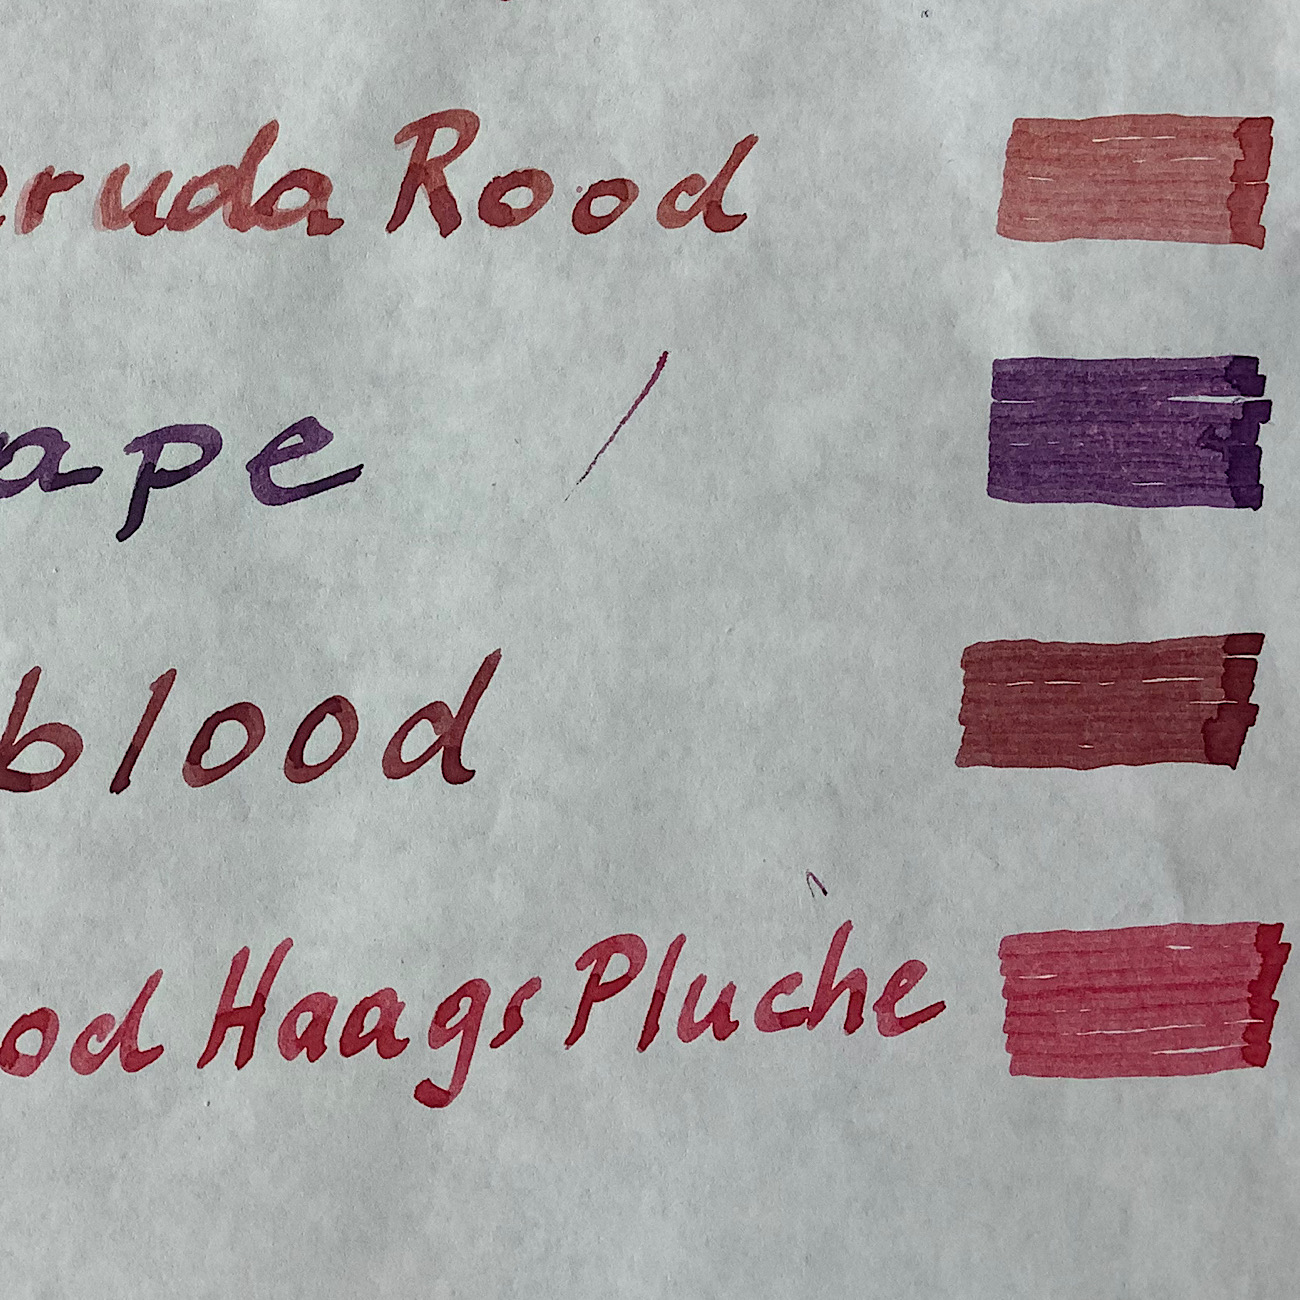 eruda Rood
ape /
blood
od Haags Pluche